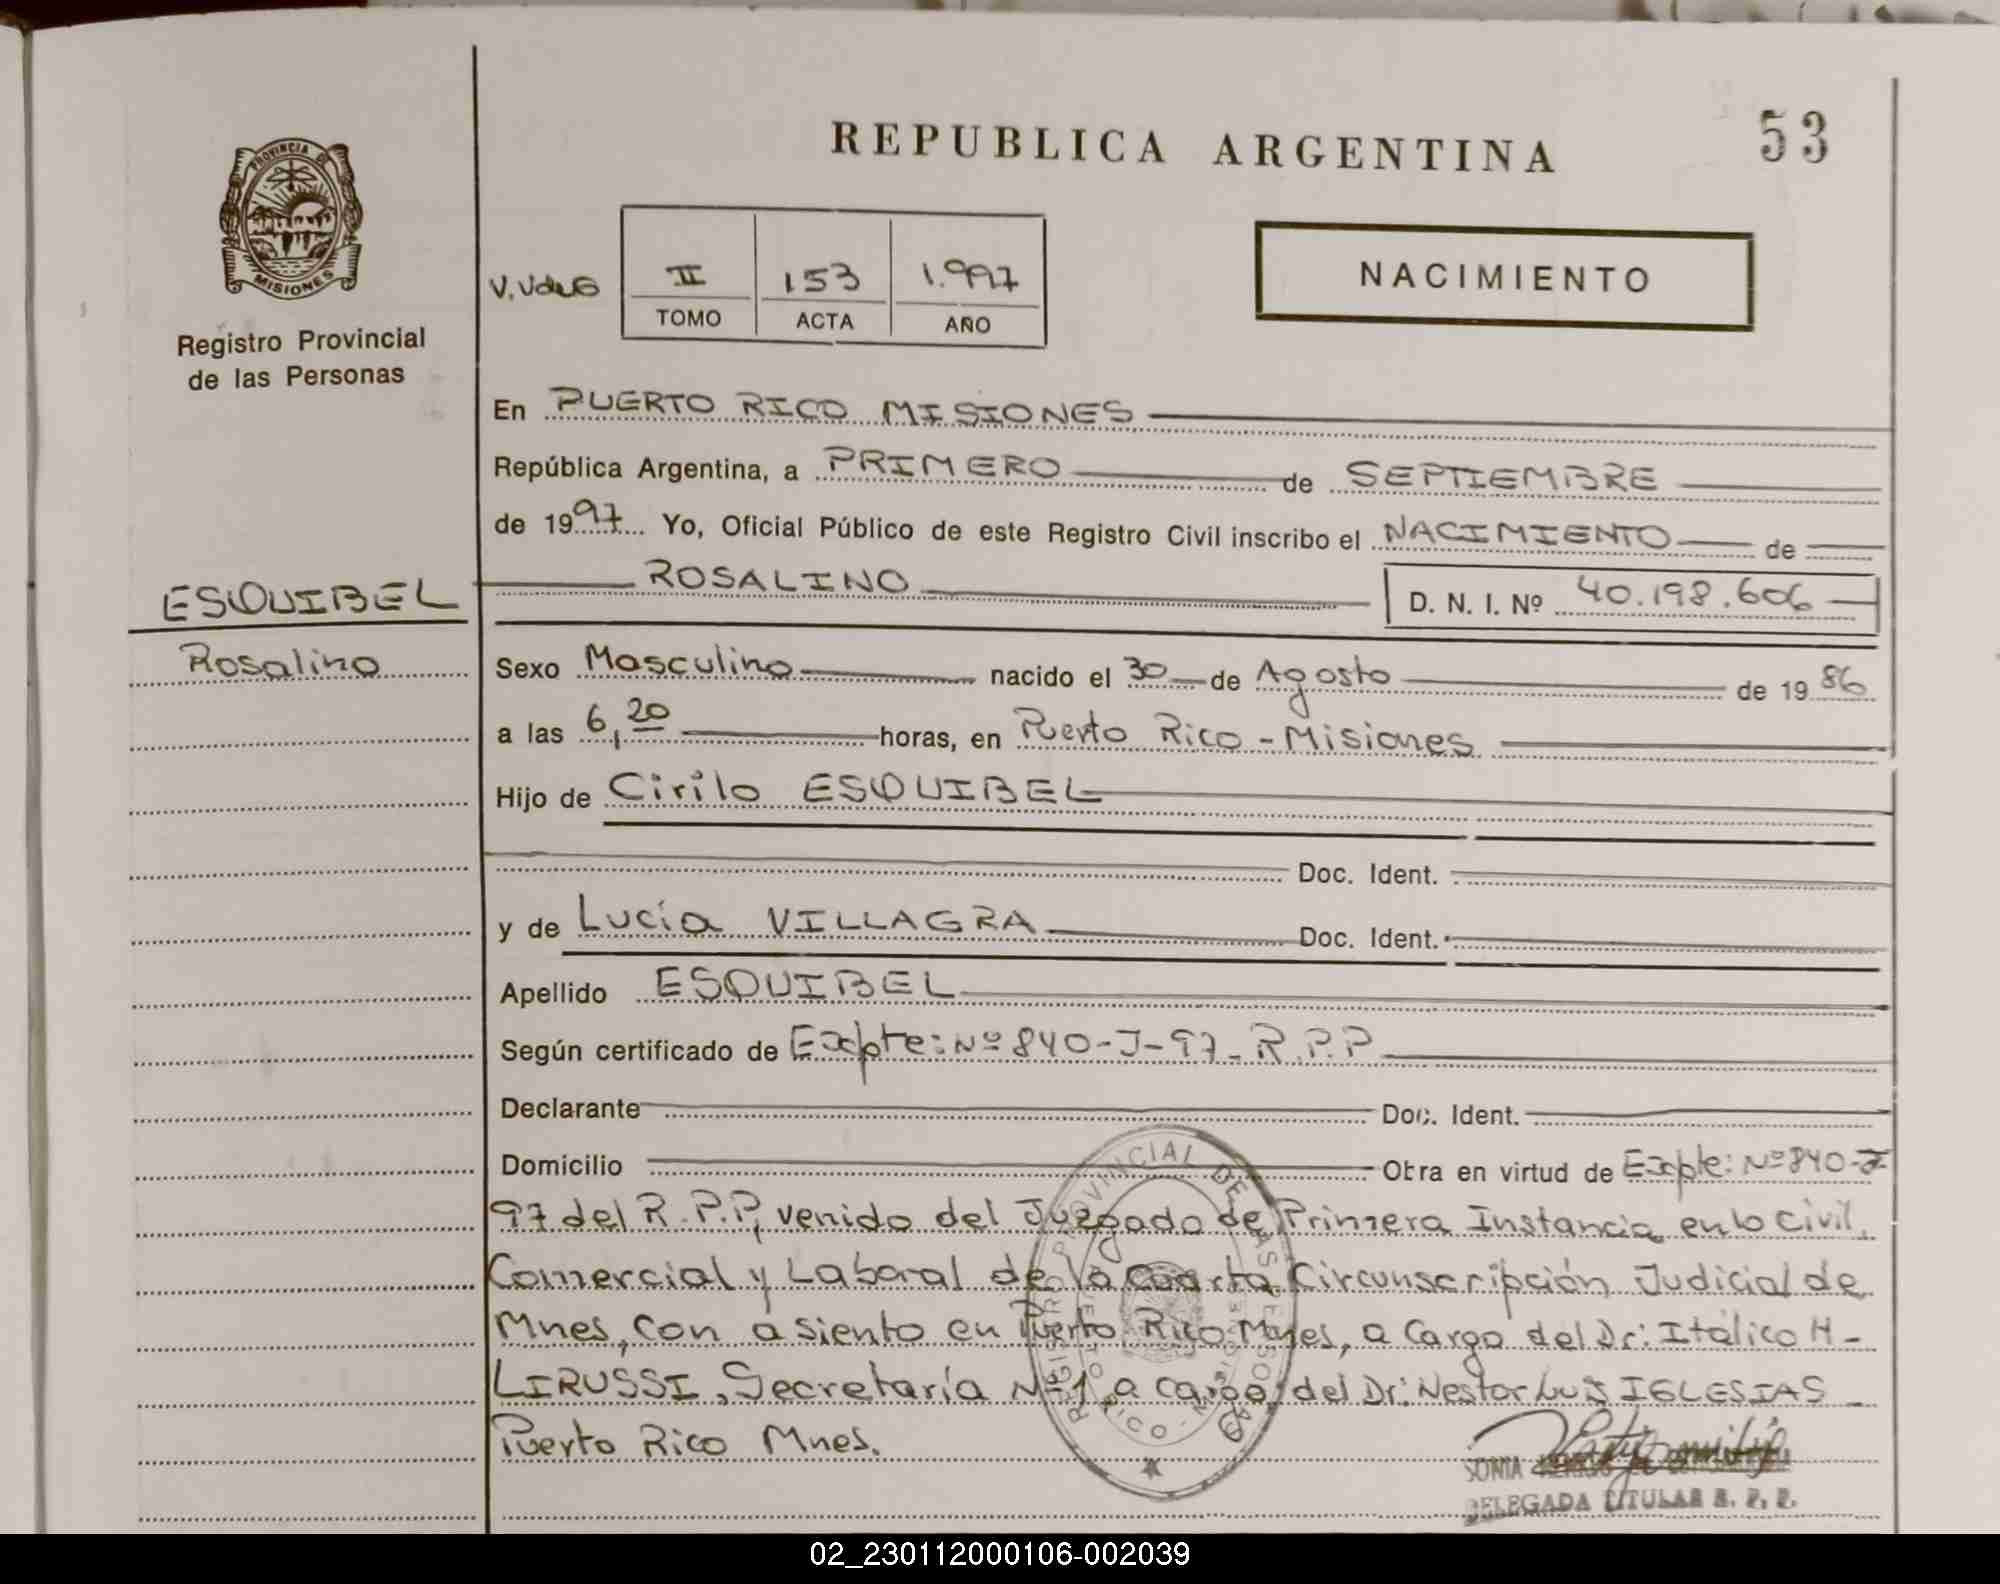 REPUBLICA ARGENTINA
53
PROVINCIA DE
MISIONES
Registro Provincial
de las Personas
II 153 1.997
TOMO ACTA AÑO
NACIMIENTO
En PUERTO RICO MISIONES
República Argentina, a PRIMERO de SEPTIEMBRE
de 1997 Yo, Oficial Público de este Registro Civil inscribo el NACIMIENTO de
ROSALINO D. N. I. Nº 40.198.606
ESQUIBEL
Rosalino
Sexo Masculino nacido el 30 de Agosto de 19 86
a las 6,20 horas, en Puerto Rico - Misiones
Hijo de Cirilo ESQUIBEL
Doc. Ident.
y de Lucía VILLAGRA Doc. Ident.
Apellido ESQUIBEL
Según certificado de Expte: Nº 840-J-97- R.P.P
Declarante Doc. Ident.
Domicilio Otra en virtud de Expte: Nº 840-J-
97 del R.P.P, venido del Juzgado de Primera Instancia en lo Civil,
Comercial y Laboral de la Cuarta Circunscripción Judicial de
Mnes, con asiento en Puerto Rico Mnes, a Cargo del Dr: Itálico H-
LIRUSSI, Secretaría Nº 1 a cargo del Dr: Nestor Luis IGLESIAS
Puerto Rico Mnes.
REGISTRO PROVINCIAL DE LAS PERSONAS
SONIA
DELEGADA TITULAR R. P. P.
02_230112000106-002039